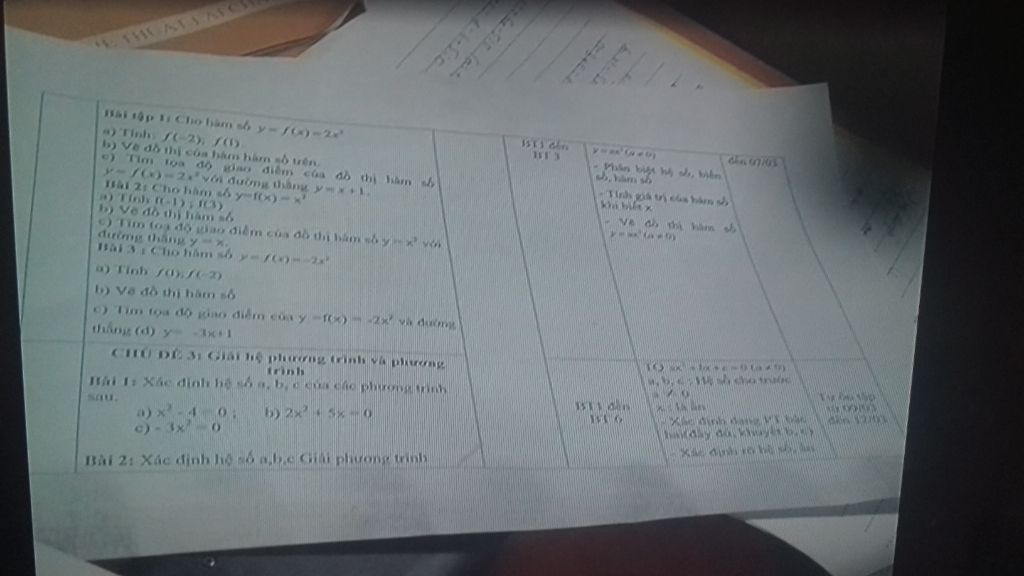 Bài tập 1: Cho hàm số y = f(x) = 2x²
a) Tính: f(-2); f(1).
b) Vẽ đồ thị của hàm hàm số trên.
c) Tìm tọa độ giao điểm của đồ thị hàm số
y = f(x) = 2x² với đường thẳng y = x + 1.
Bài 2: Cho hàm số y=f(x) = x²
a) Tính f(-1) ; f(3)
b) Vẽ đồ thị hàm số
c) Tìm toạ độ giao điểm của đồ thị hàm số y = x² với
đường thẳng y = x.
Bài 3 : Cho hàm số y = f(x) = -2x²
a) Tính f(1); f(-2)
b) Vẽ đồ thị hàm số
c) Tìm tọa độ giao điểm của y =f(x) = -2x² và đường
thẳng (d) y= -3x+1
BT1 đến
BT 3
y = ax² (a ≠ 0)
- Phân biệt hệ số, biến
số, hàm số
- Tính giá trị của hàm số
khi biết x
- Vẽ đồ thị hàm số
y = ax² (a ≠ 0)
đến 07/03
CHỦ ĐỀ 3: Giải hệ phương trình và phương
trình
Bài 1: Xác định hệ số a, b, c của các phương trình
sau.
a) x² - 4 = 0 ; b) 2x² + 5x = 0
c) - 3x² = 0
Bài 2: Xác định hệ số a,b,c Giải phương trình
BT1 đến
BT 6
ax² + bx + c = 0 (a ≠ 0)
a, b, c : Hệ số cho trước
a ≠ 0
x : là ẩn
- Xác định dạng PT bậc
hai(đầy đủ, khuyết b, c)
- Xác định rõ hệ số, ẩn
Tự ôn tập
từ 09/03
đến 12/03